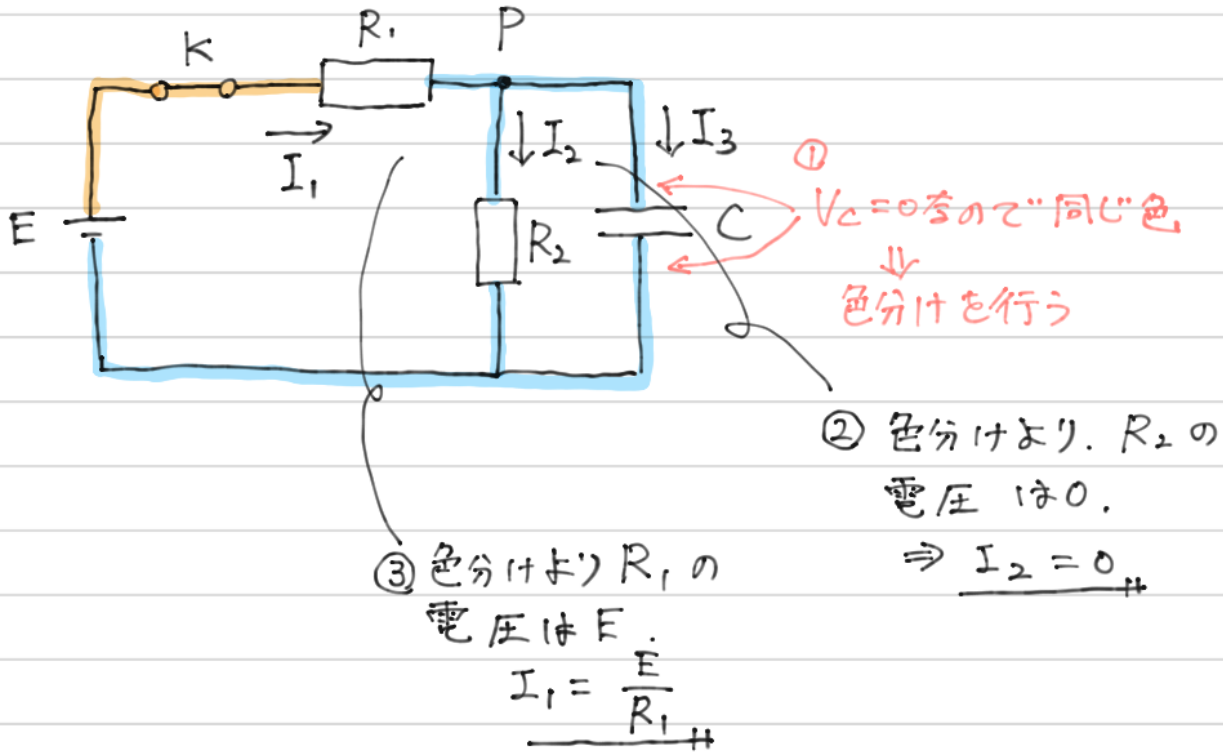 K
R₁
P
I₁
I₂
I₃
E
R₂
C
①
Vc=0なので同じ色
⇓
色分けを行う
② 色分けより. R₂の
電圧は0.
⇒ I₂ = 0
③ 色分けより R₁の
電圧は E.
I₁ = E/R₁